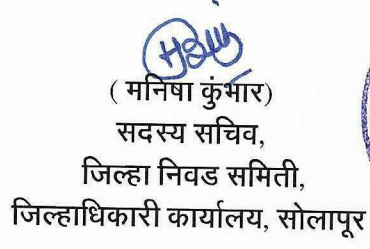 ( मनिषा कुंभार)
सदस्य सचिव,
जिल्हा निवड समिती,
जिल्हाधिकारी कार्यालय, सोलापूर